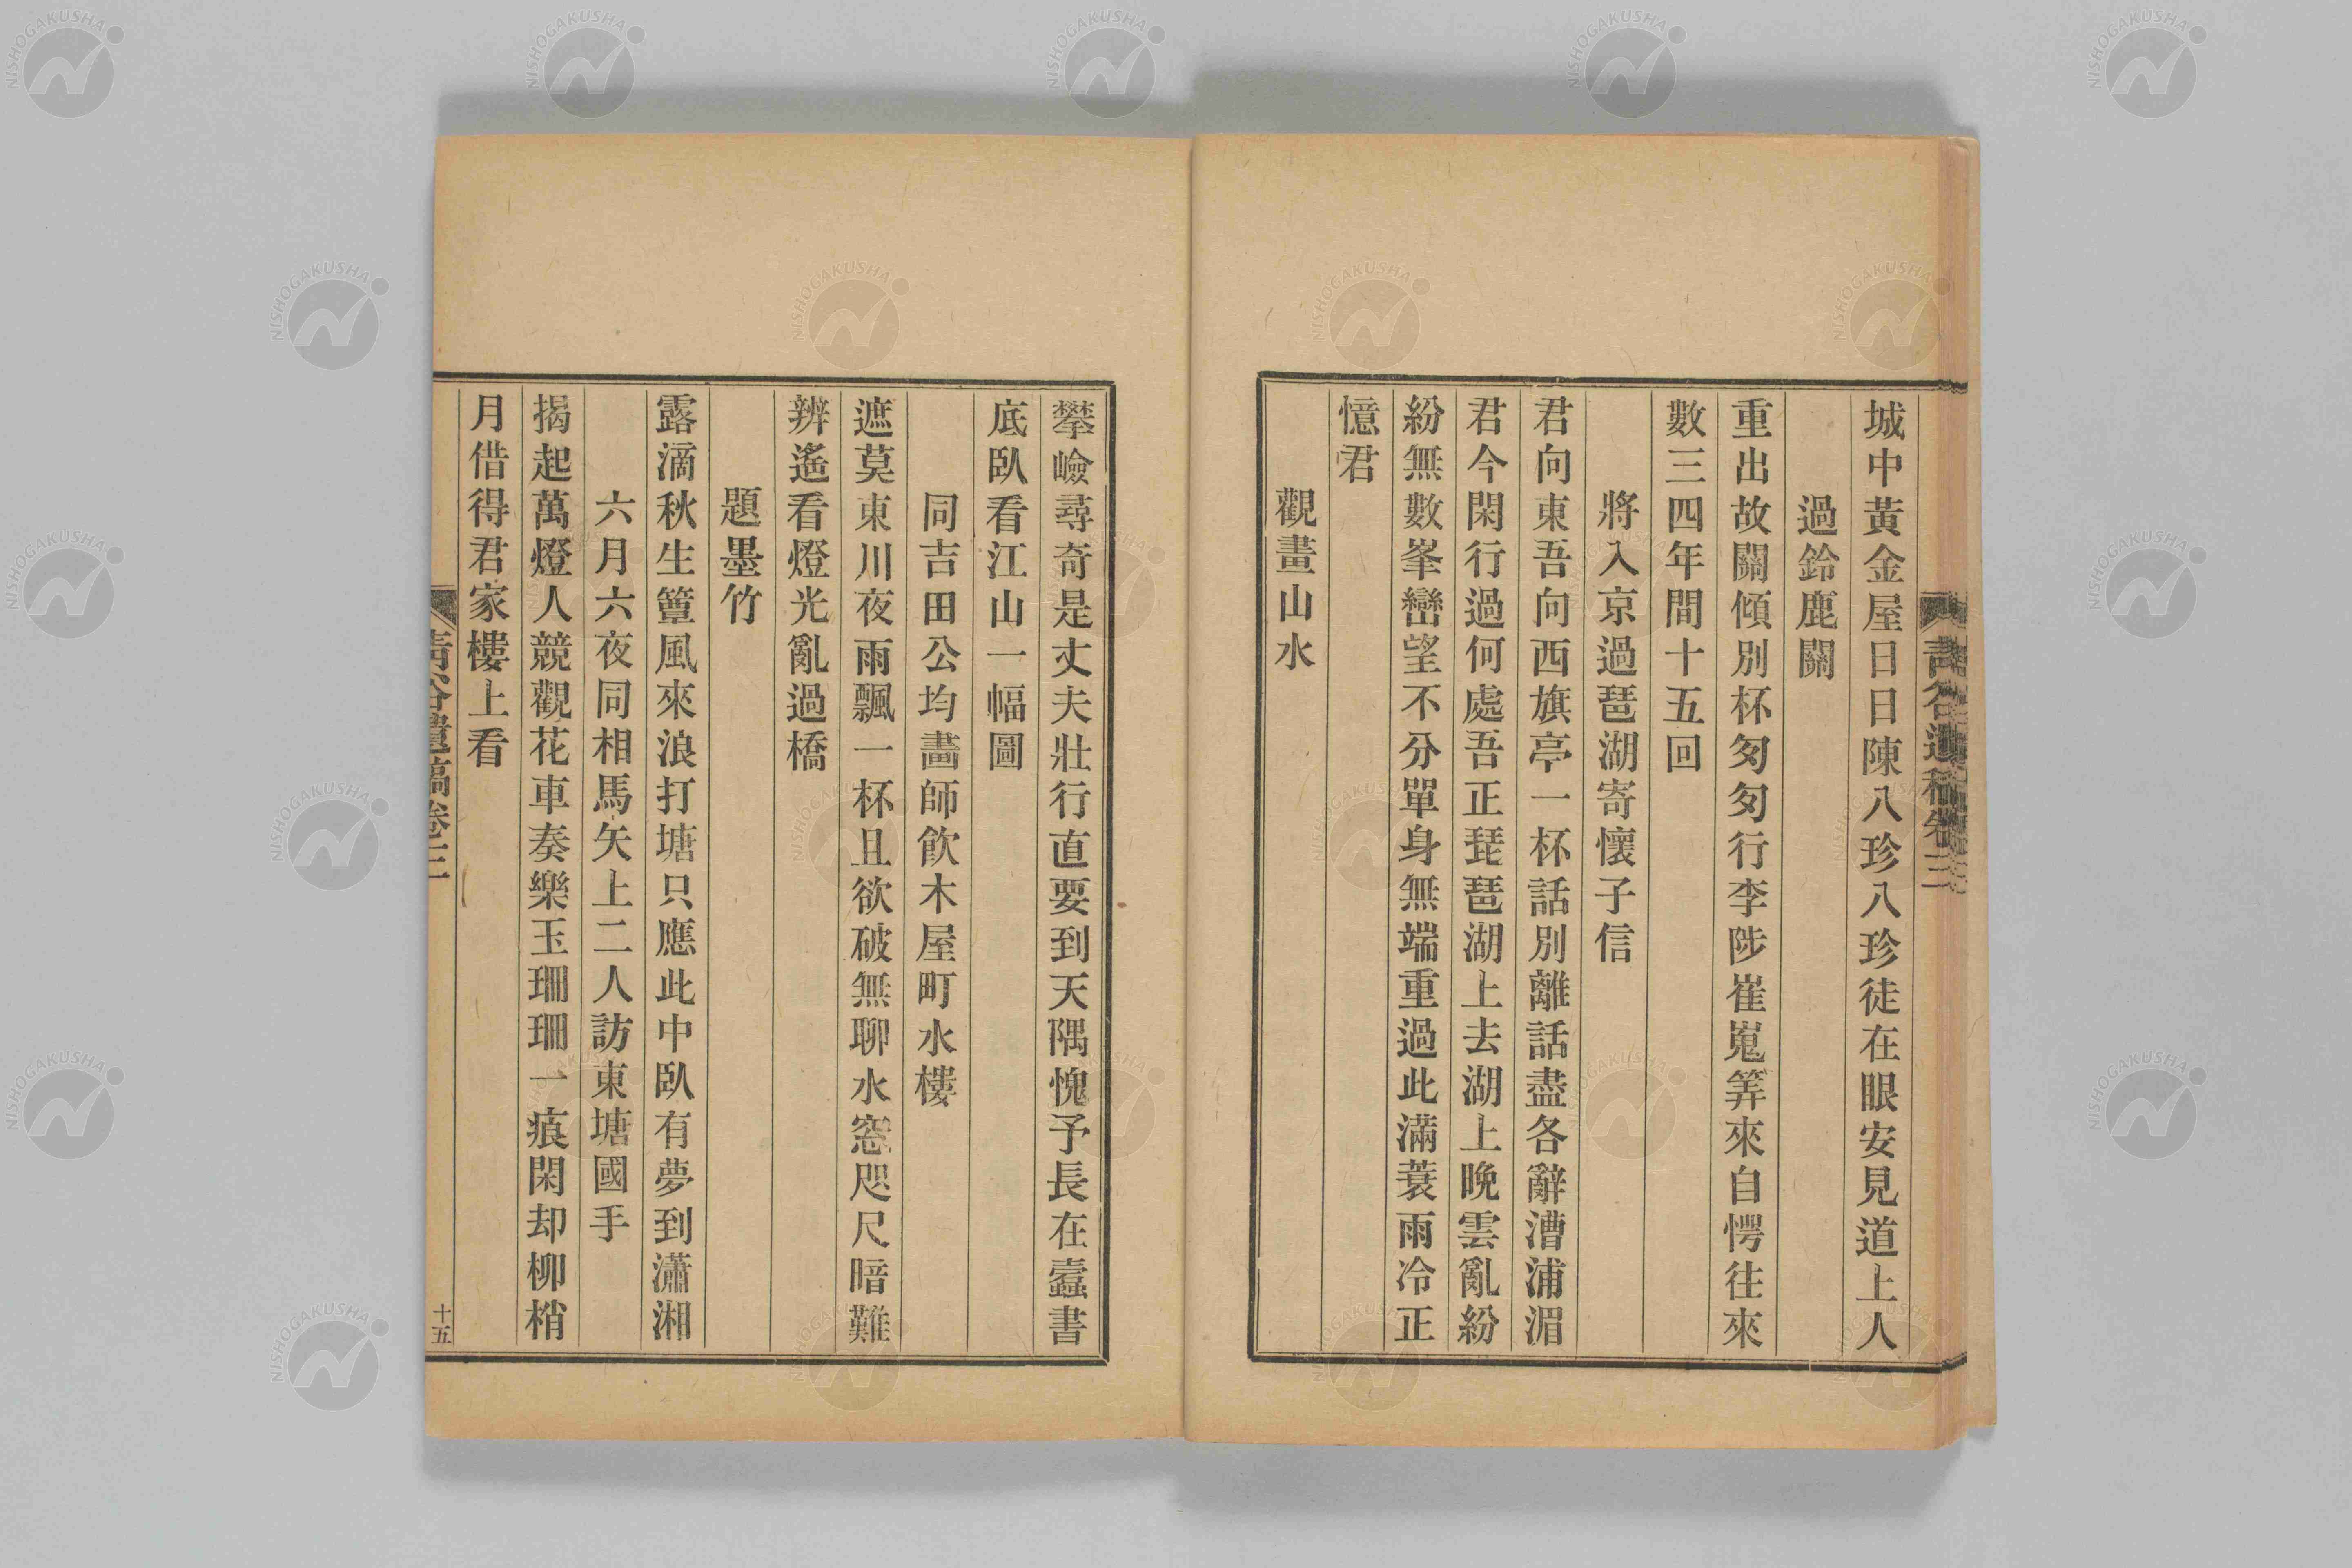 城中黃金屋日日陳八珍八珍徒在眼安見道上人
過鈴鹿關
重出故關傾別杯匆匆行李陟崔嵬筭來自愕往來
數三四年間十五回
將入京過琶湖寄懷子信
君向東吾向西旗亭一杯話別離話盡各辭漕浦湄
君今閑行過何處吾正琵琶湖上去湖上晚雲亂紛
紛無數峯巒望不分單身無端重過此滿蓑雨冷正
憶君
觀畫山水
攀嶮尋奇是丈夫壯行直要到天隅愧予長在蠹書
底臥看江山一幅圖
同吉田公均畵師飮木屋町水樓
遮莫東川夜雨飄一杯且欲破無聊水窓咫尺暗難
辨遙看燈光亂過橋
題墨竹
露滴秋生簟風來浪打塘只應此中臥有夢到瀟湘
六月六夜同相馬矢上二人訪東塘國手
揭起萬燈人競觀花車奏樂玉珊珊一痕閑却柳梢
月借得君家樓上看
遺稿卷三
十五
NISHOGAKUSHA